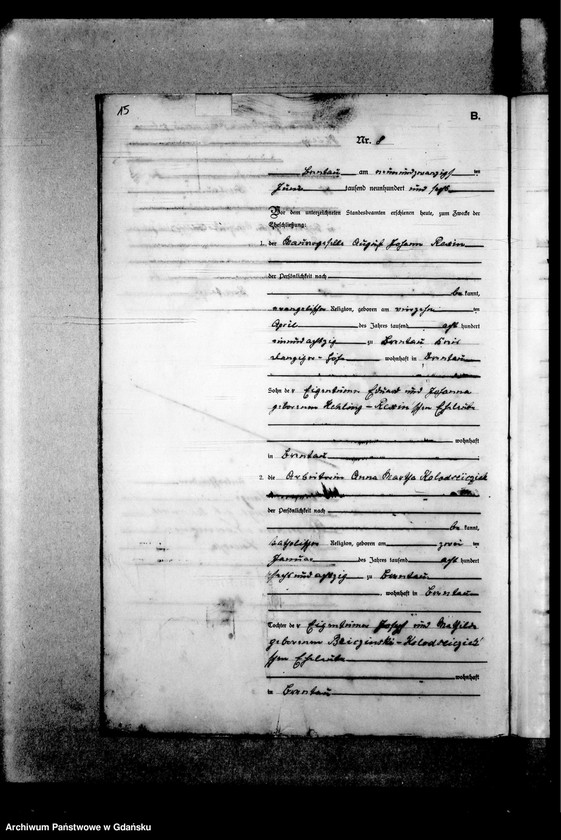 15
B.
Nr. 8
Brentau am neunundzwanzigsten
Juni tausend neunhundert und sechs
Vor dem unterzeichneten Standesbeamten erschienen heute, zum Zwecke der
Eheschließung:
1. der August Johann Rexin
der Persönlichkeit nach
be kannt,
evangelischer Religion, geboren am vierzehnten
April des Jahres tausend acht hundert
einundachtzig zu Brentau Kreis
Danziger-Höhe wohnhaft in Brentau
Sohn der Eigentümer Eduard und Johanna
geborenen Rexin'schen Eheleute
wohnhaft
in Brentau
2. die Arbeiterin Anna Martha Kolodzeiczick
der Persönlichkeit nach
be kannt,
katholischer Religion, geboren am zweiten
Januar des Jahres tausend acht hundert
sechsundachtzig zu Brentau
wohnhaft in Brentau
Tochter der Eigentümer Joseph und Mathilde
geborenen
schen Eheleute
wohnhaft
in Brentau
Archiwum Państwowe w Gdańsku